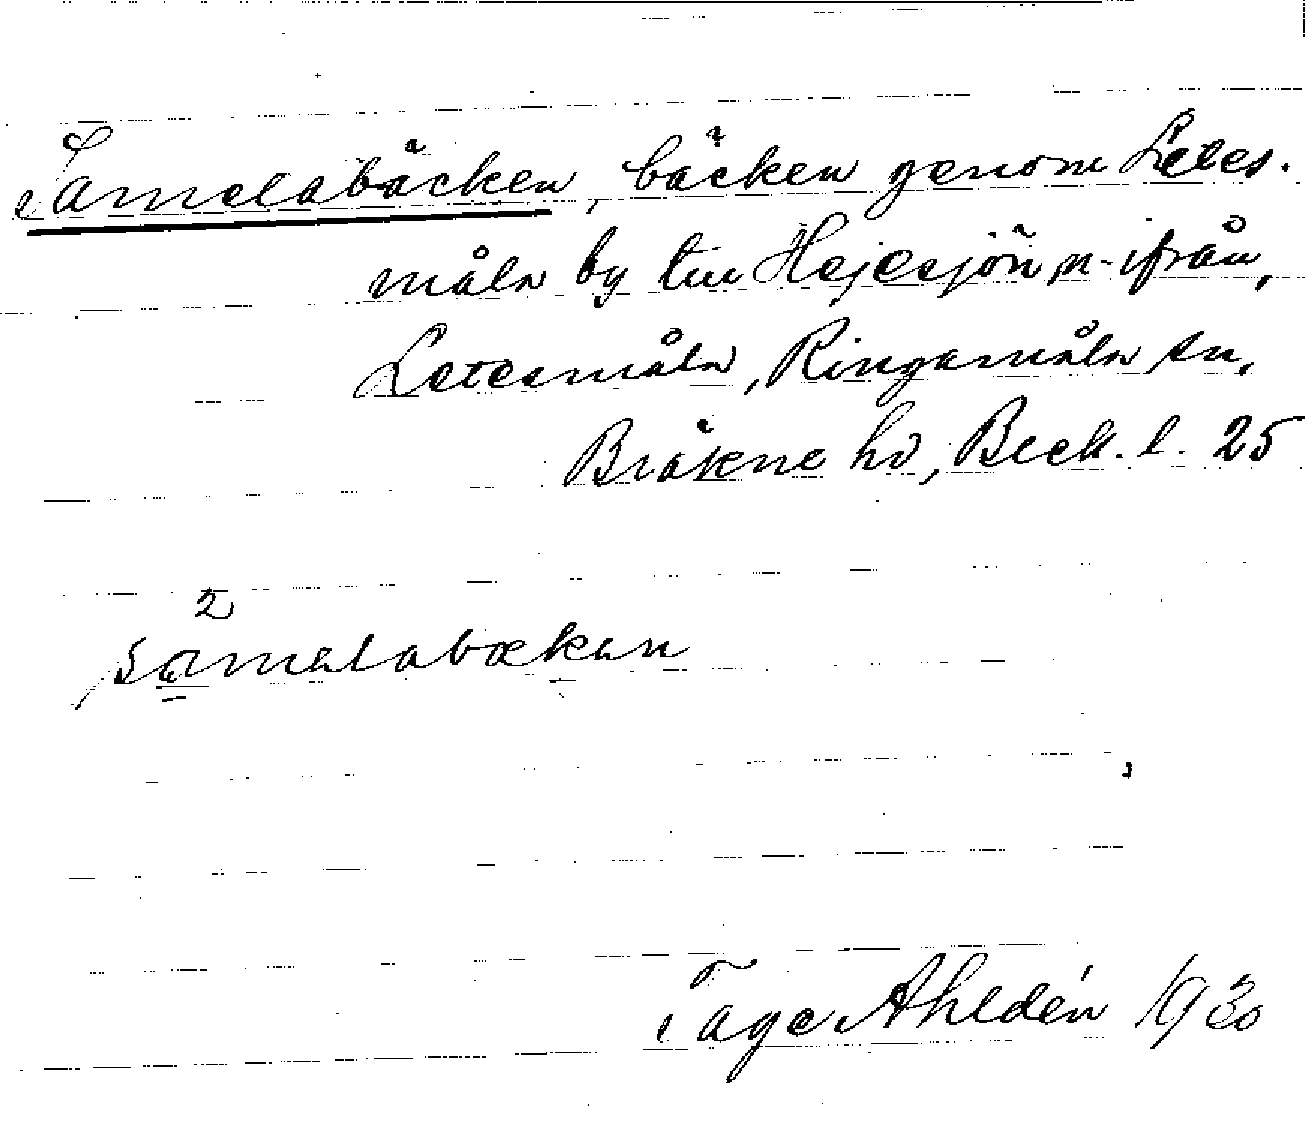 Samelabäcken, bäcken genom Letes-
måla by till Hejesjön n. ifrån,
Letesmåla, Ringamåla sn,
Bräkne hd, Blek. l. 25
2
samelabæken
Tage Ahldén 1930